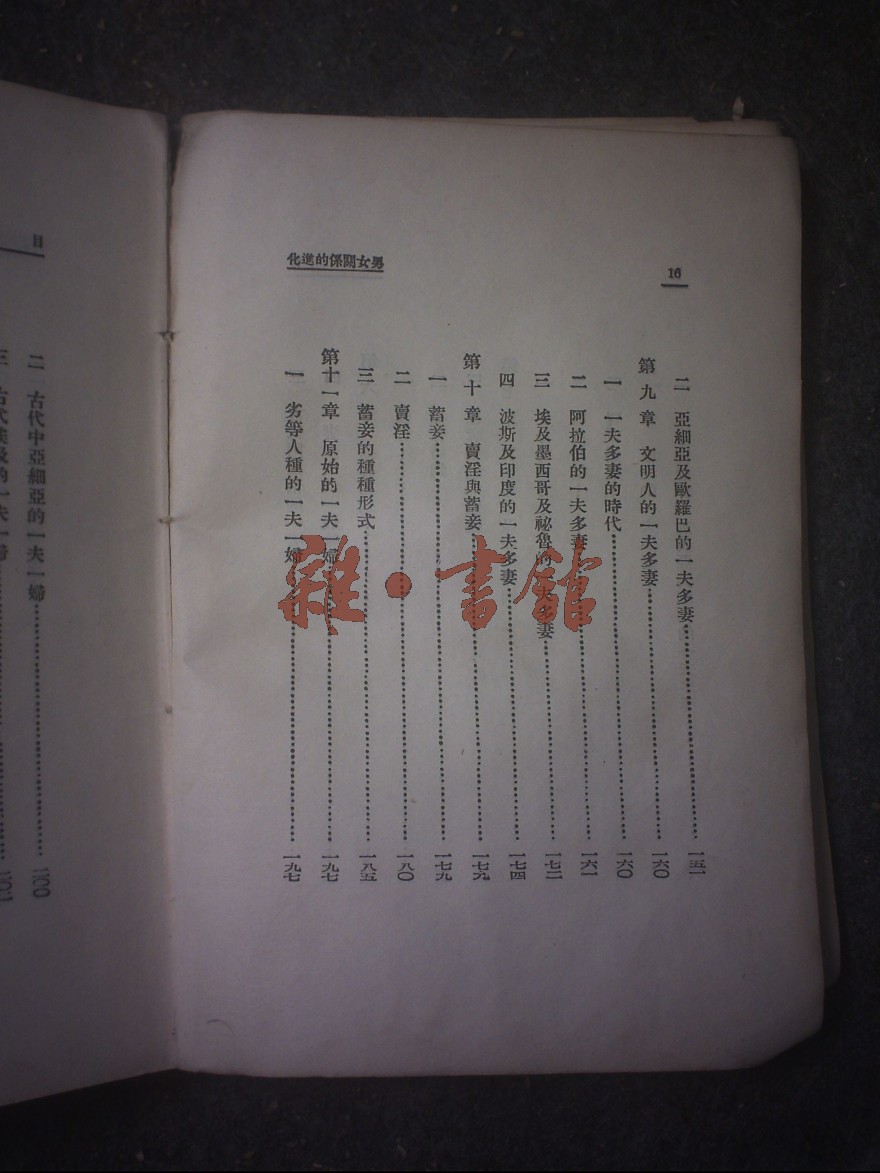 化進的係關女男
16
二 亞細亞及歐羅巴的一夫多妻……一五一
第九章 文明人的一夫多妻……一六〇
一 一夫多妻的時代……一六〇
二 阿拉伯的一夫多妻……一六一
三 埃及墨西哥及祕魯的一夫多妻……一七二
四 波斯及印度的一夫多妻……一七四
第十章 賣淫與蓄妾……一七九
一 蓄妾……一七九
二 賣淫……一八〇
三 蓄妾的種種形式……一八五
第十一章 原始的一夫一婦……一九七
一 劣等人種的一夫一婦……一九七
目
二 古代中亞細亞的一夫一婦……二〇〇
三 古代埃及的一夫一婦
雜·書館